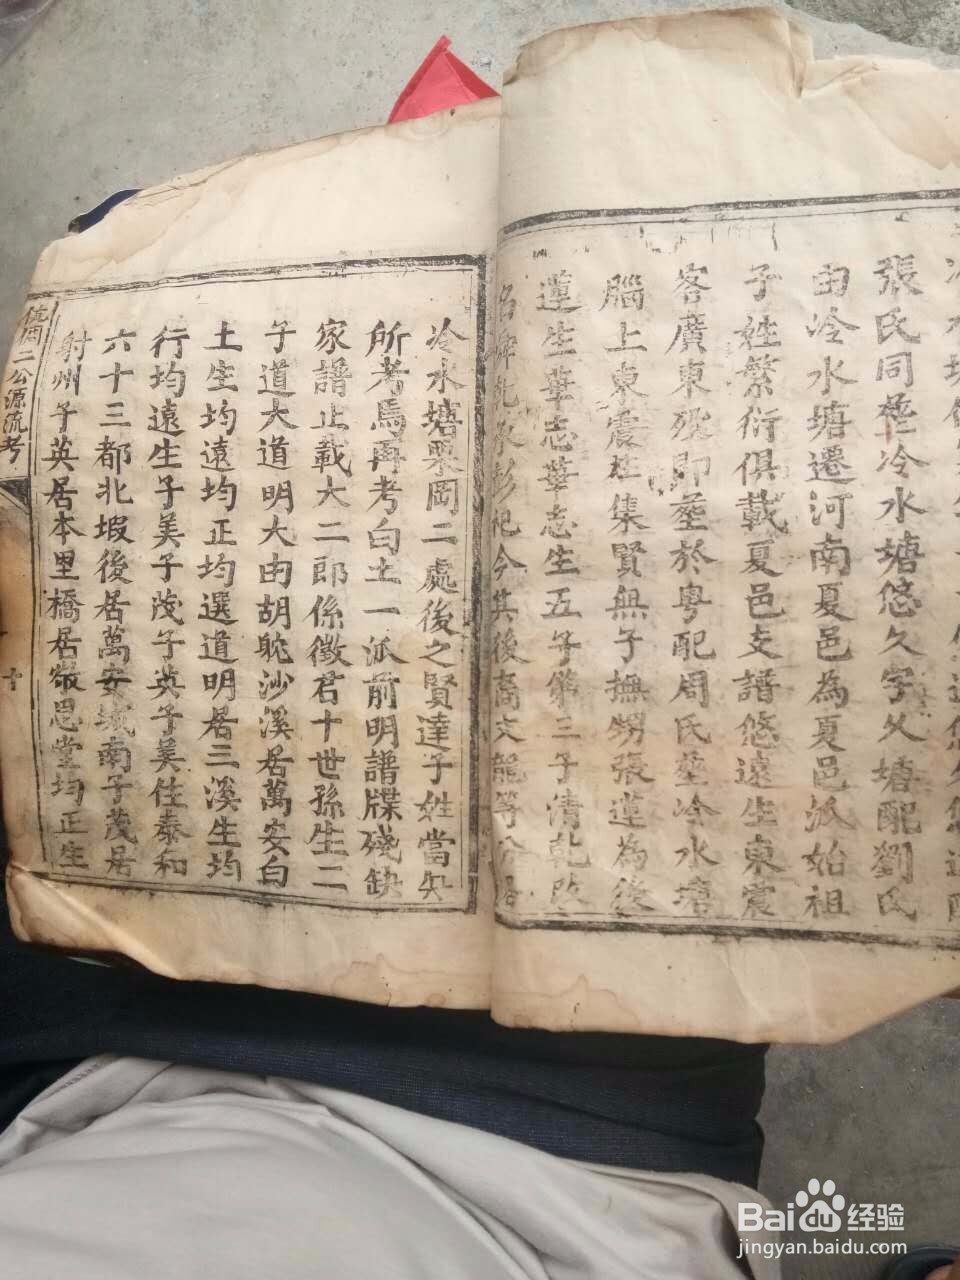 張氏同塟冷水塘悠久字久塘配劉氏
由冷水塘遷河南夏邑為夏邑派始祖
子姓繁衍俱載夏邑支譜悠遠生東震
客廣東殁即塟於粤配周氏塟冷水塘
腦上東震姓集賢無子撫甥張蓮為後
蓮生華志華志生五子第三子清乾
名 乳 彭祀今其後裔文龍等
冷水塘栗岡二處後之賢達子姓當知
所考焉再考白土一派前明譜牒殘缺
家譜止載大二郎係徵君十世孫生二
子道大道明大由胡眈沙溪居萬安白
土生均遠均正均選道明居三溪生均
行均遠生子美子茂子英子美住泰和
六十三都北坡後居萬安城南子茂居
射州子英居本里橋居敬思堂均正生
二公源流考
十
Bai du 经验
jingyan.baidu.com